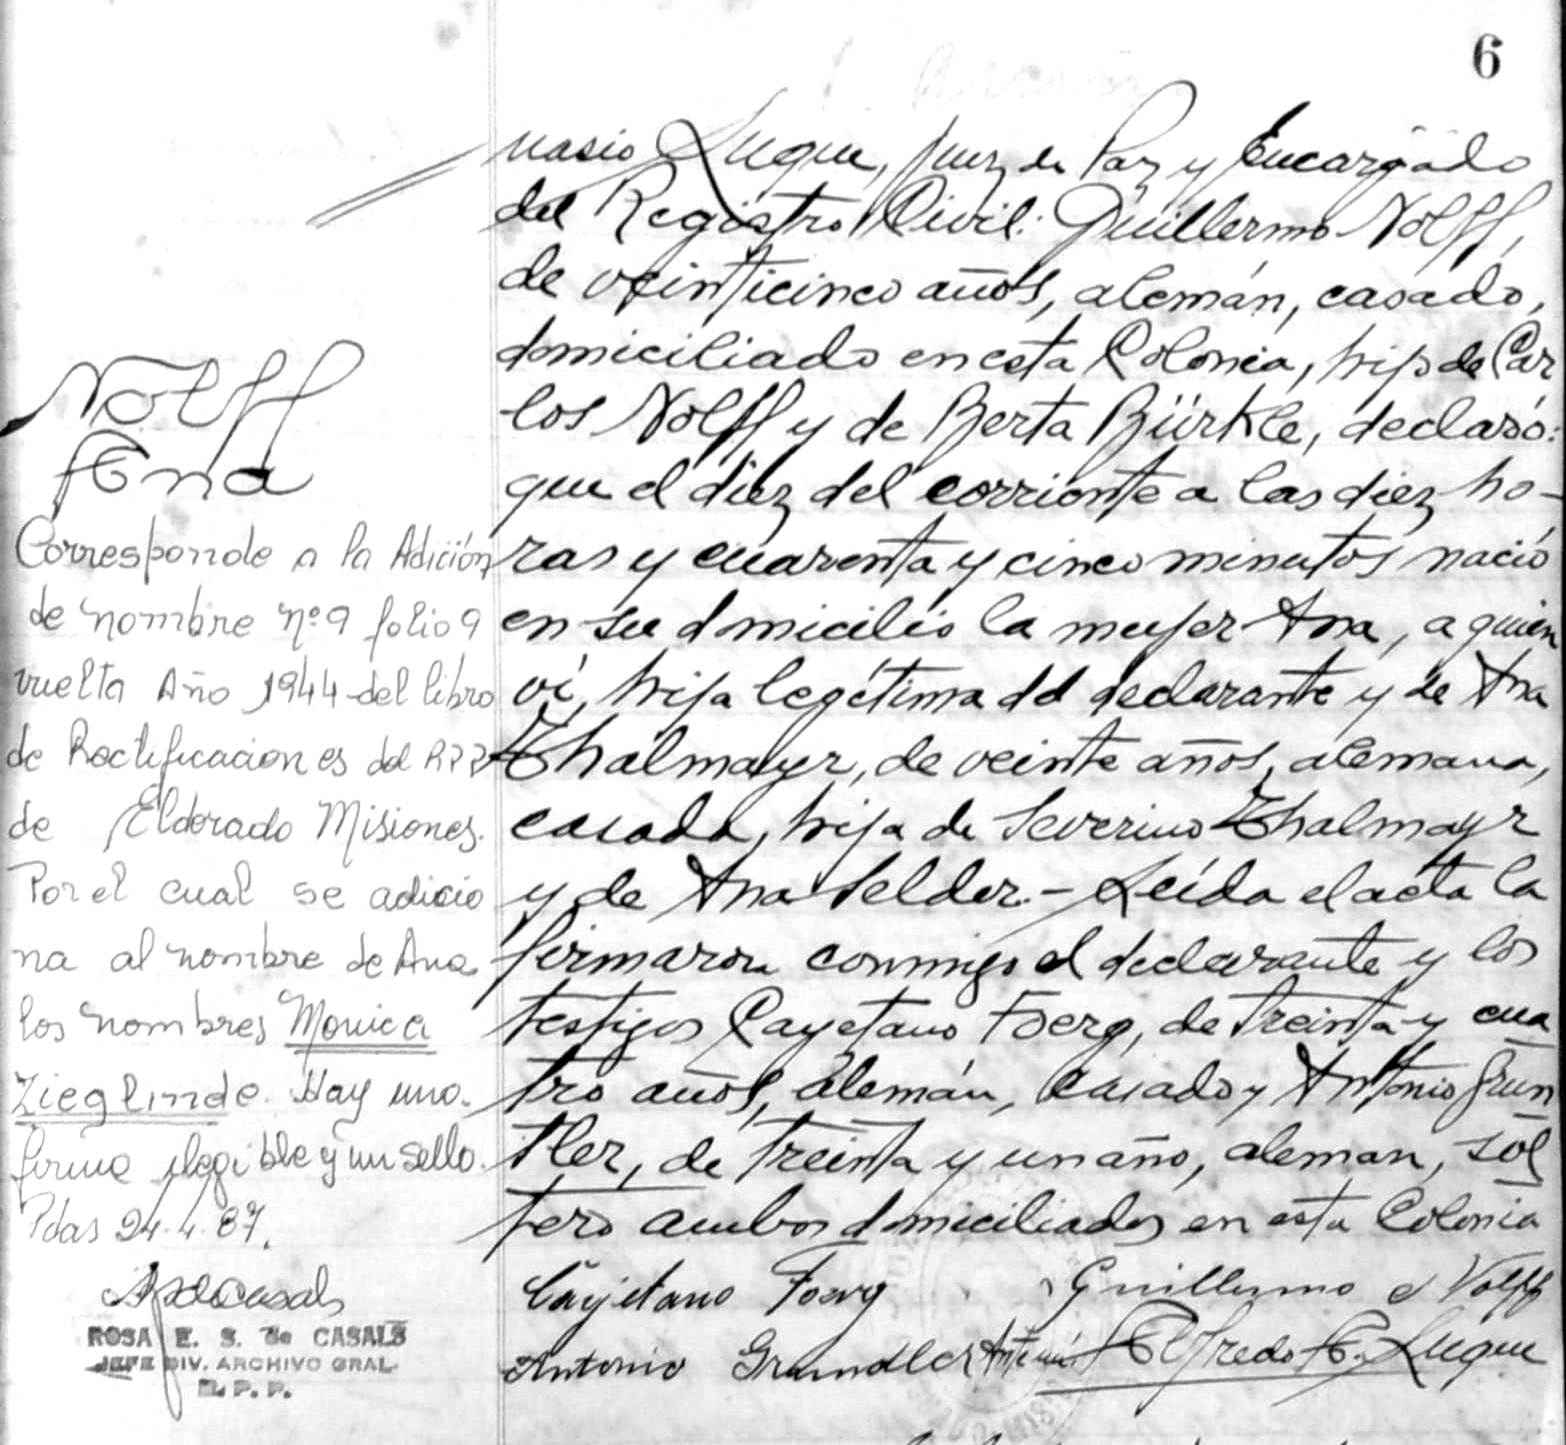 6
nasio Luque, Juez de Paz y Encargado
del Registro Civil: Guillermo Nolff,
de veinticinco años, alemán, casado,
domiciliado en esta Colonia, hijo de Car
los Nolff y de Berta Bürkle, declaró:
que el diez del corriente a las diez ho-
ras y cuarenta y cinco minutos nació
en su domicilio la mujer Ana, a quien
vi, hija legítima del declarante y de Ana
Thalmayr, de veinte años, alemana,
casada, hija de Severino Thalmayr
y de Ana Selder.- Leída el acta la
firmaron conmigo el declarante y los
testigos Cayetano Foerg, de treinta y cua
tro años, alemán, casado y Antonio Grun
tler, de treinta y un año, aleman, sol
tero ambos domiciliados en esta Colonia
Cayetano Foerg
Guillermo Nolff
Antonio Grundler Ante mí: Alfredo A. Luque
Nolff
Ana
Corresponde a la Adición
de nombre nº 9 folio 9
vuelta Año 1944 del libro
de Rectificaciones del RPP
de Eldorado Misiones.
Por el cual se adicio
na al nombre de Ana
los nombres Monica
Zieglinde. Hay una
firma ilegible y un sello.
Pdas 24.4.87.
ROSA E. S. de CASALS
JEFE DIV. ARCHIVO GRAL.
R. P. P.